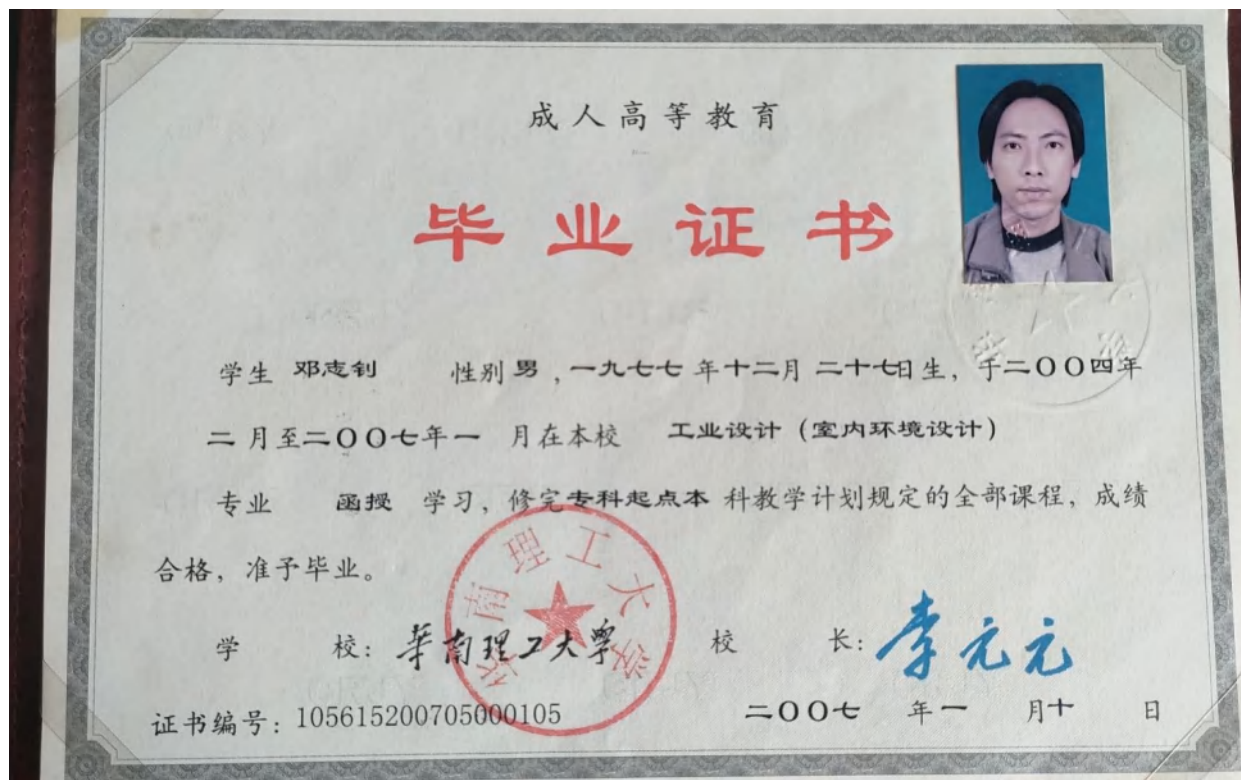 成人高等教育
毕业证书
学生 邓志钊 性别 男 , 一九七七 年 十二月 二十七日生, 于二〇〇四年
二 月至二〇〇七年一 月在本校 工业设计 (室内环境设计)
专业 函授 学习, 修完专科起点本 科教学计划规定的全部课程, 成绩
合格, 准予毕业。
学 校: 华南理工大学 校 长: 李元元
华南理工大学
证书编号: 105615200705000105 二〇〇七 年 一 月十 日